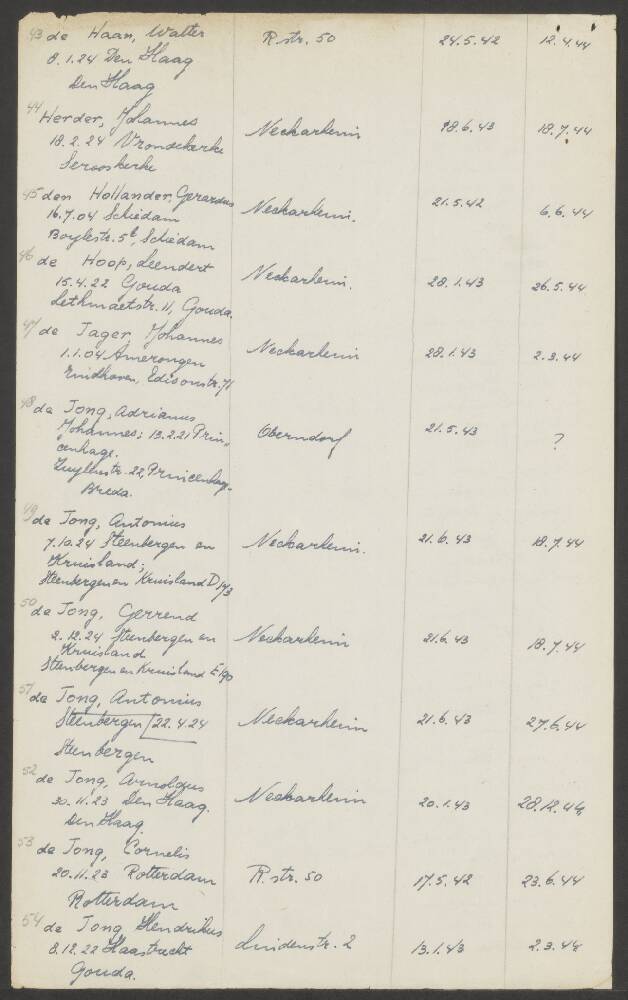 43 de Haan, Walter R.str. 50 24.5.42 12.4.44
8.1.24 Den Haag
Den Haag
44 Herder, Johannes Neckarheim 18.6.43 18.7.44
18.2.24 Vrondekerke
Serooskerke
45 den Hollander, Gerardus Neckarheim. 21.5.42 6.6.44
16.7.04 Schiedam
Boylestr. 5c, Schiedam
46 de Hoop, Leendert Neckarheim. 28.1.43 26.5.44
15.4.22 Gouda
Lethmaetstr. 11, Gouda.
47 de Jager, Johannes Neckarheim 28.1.43 2.3.44
1.1.04 Amerongen
Eindhoven, Edisonstr. 71
48 de Jong, Adrianus Oberndorf 21.5.43 ?
Johannes; 13.2.21 Prin„
cenhage.
Zuylenstr. 22, Princenhag-
Breda.
49 de Jong, Antonius Neckarheim. 21.6.43 18.7.44
7.10.24 Steenbergen en
Kruisland;
Steenbergen en Kruisland D 143
50 de Jong, Gerrend Neckarheim 21.6.43 18.7.44
2.12.24 Steenbergen en
Kruisland
Steenbergen en Kruisland E 190
51 de Jong, Antonius Neckarheim 21.6.43 27.6.44
Steenbergen 22.4.24
Steenbergen
52 de Jong, Arnoldus Neckarheim 20.1.43 28.12.44
30.11.23 Den Haag.
Den Haag
53 de Jong, Cornelis R.str. 50 17.5.42 23.6.44
20.11.23 Rotterdam
Rotterdam
54 de Jong Hendrikus Lindenstr. 2 13.1.43 2.3.44
8.12.22 Haastrecht
Gouda.